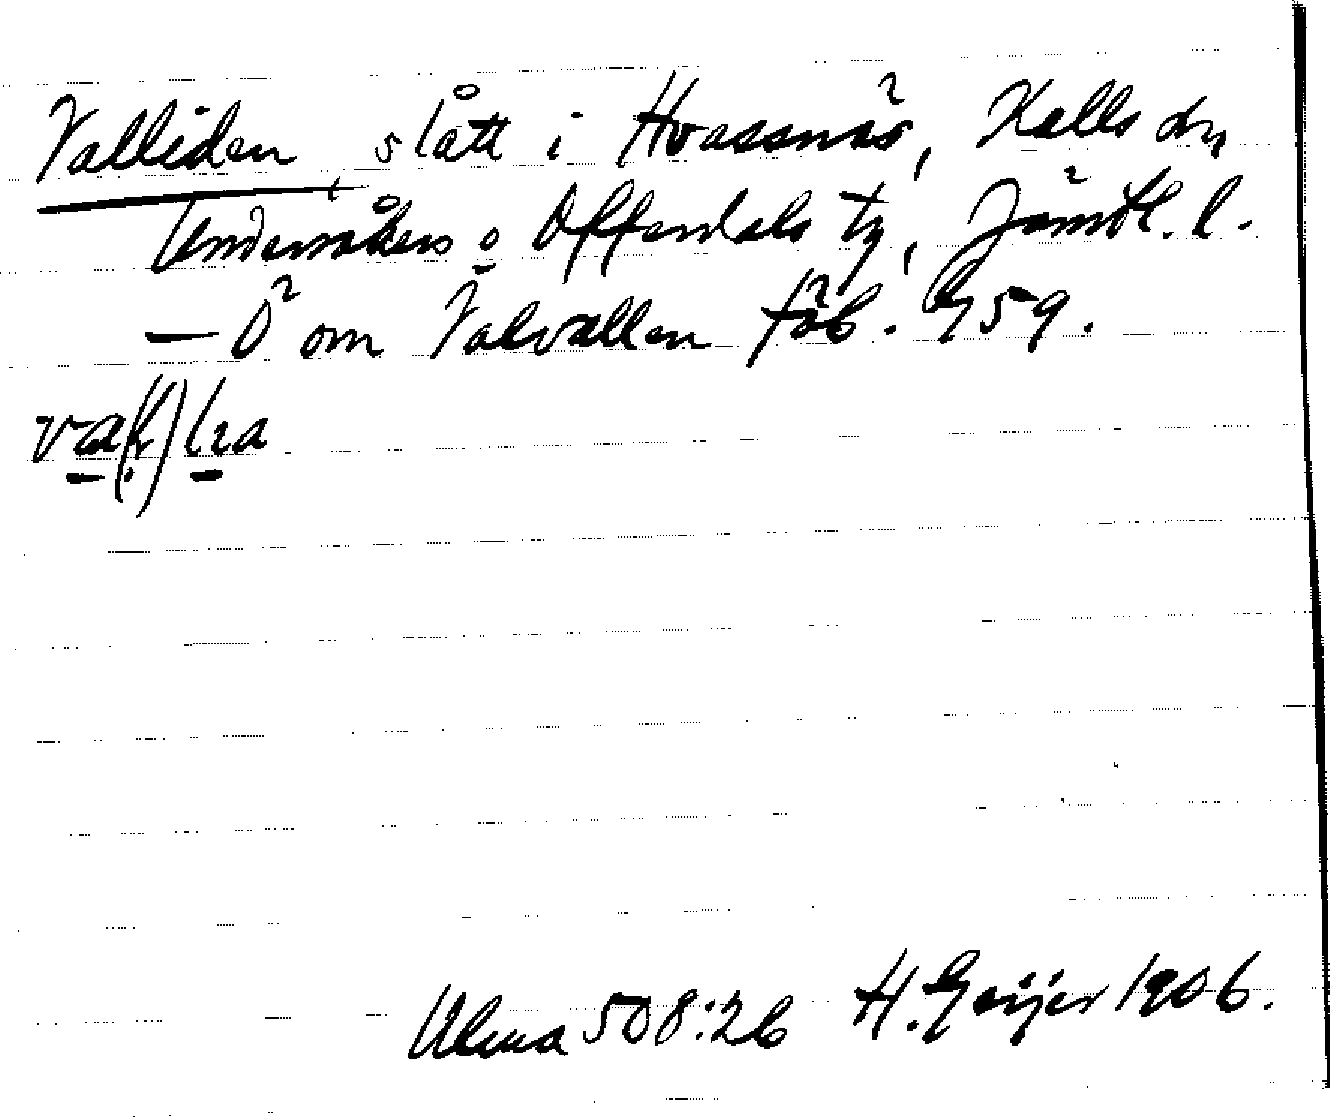 Valliden, slått i Hvassnäs, Kalls sn
Undersåkers o Offerdals tg, Jämtl. l.
— Ö om Valvallen fäb. G 59.
Ulma 508:26 H. Geijer 1906.